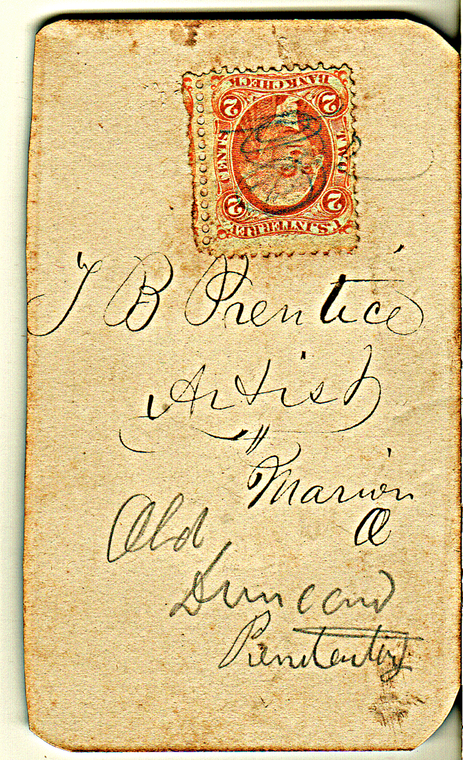 BANK CHECK
2 2
CENTS TWO
2 2
U.S. INTER. REV.
T B Prentice
Artist
Marion
O
Old
Duncan